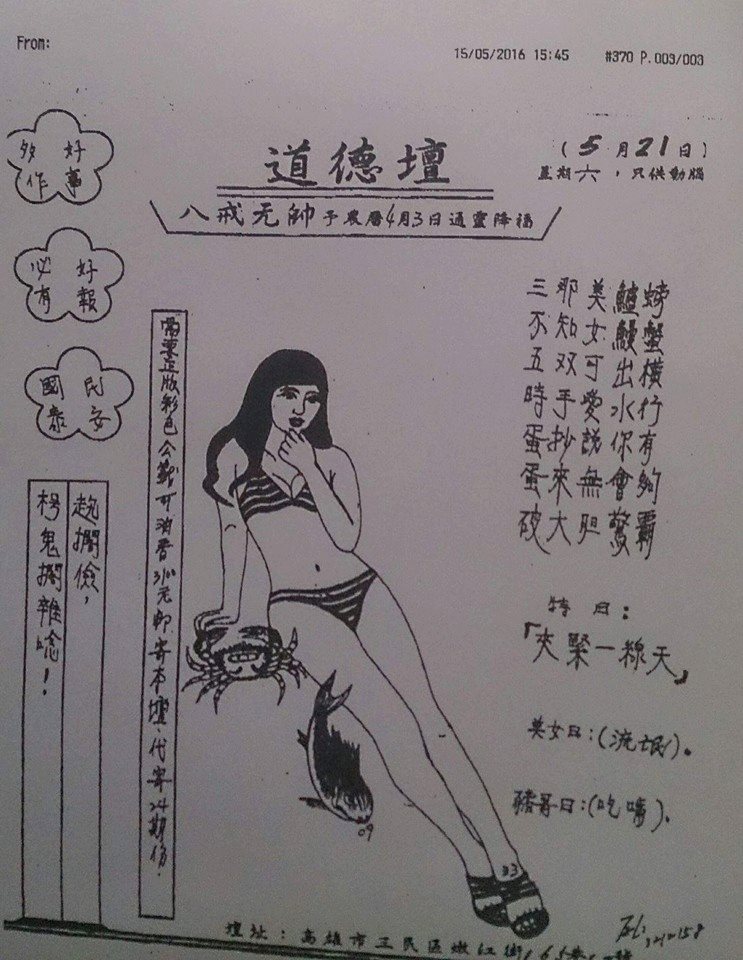 From:
15/05/2016 15:45
#370 P.003/003
多作好事
必有好報
國泰民安
道德壇
(5月21日)
星期六，只供動腦
八戒元帥予農曆4月3日通靈降福
螃蟹橫行有夠霸
鱸鰻出水你會驚
美女可愛說無胆
那知双手抄來大
三不五時蛋蛋破
特曰：
「夾緊一線天」
美女曰：(流氓)。
豬哥曰：(吃嘴)。
需要正版彩色公籤可油香3100元郵寄本壇、代寄24期份.
擱儉，
枵鬼擱雜唸！
09
壇址：高雄市三民區嫩江街